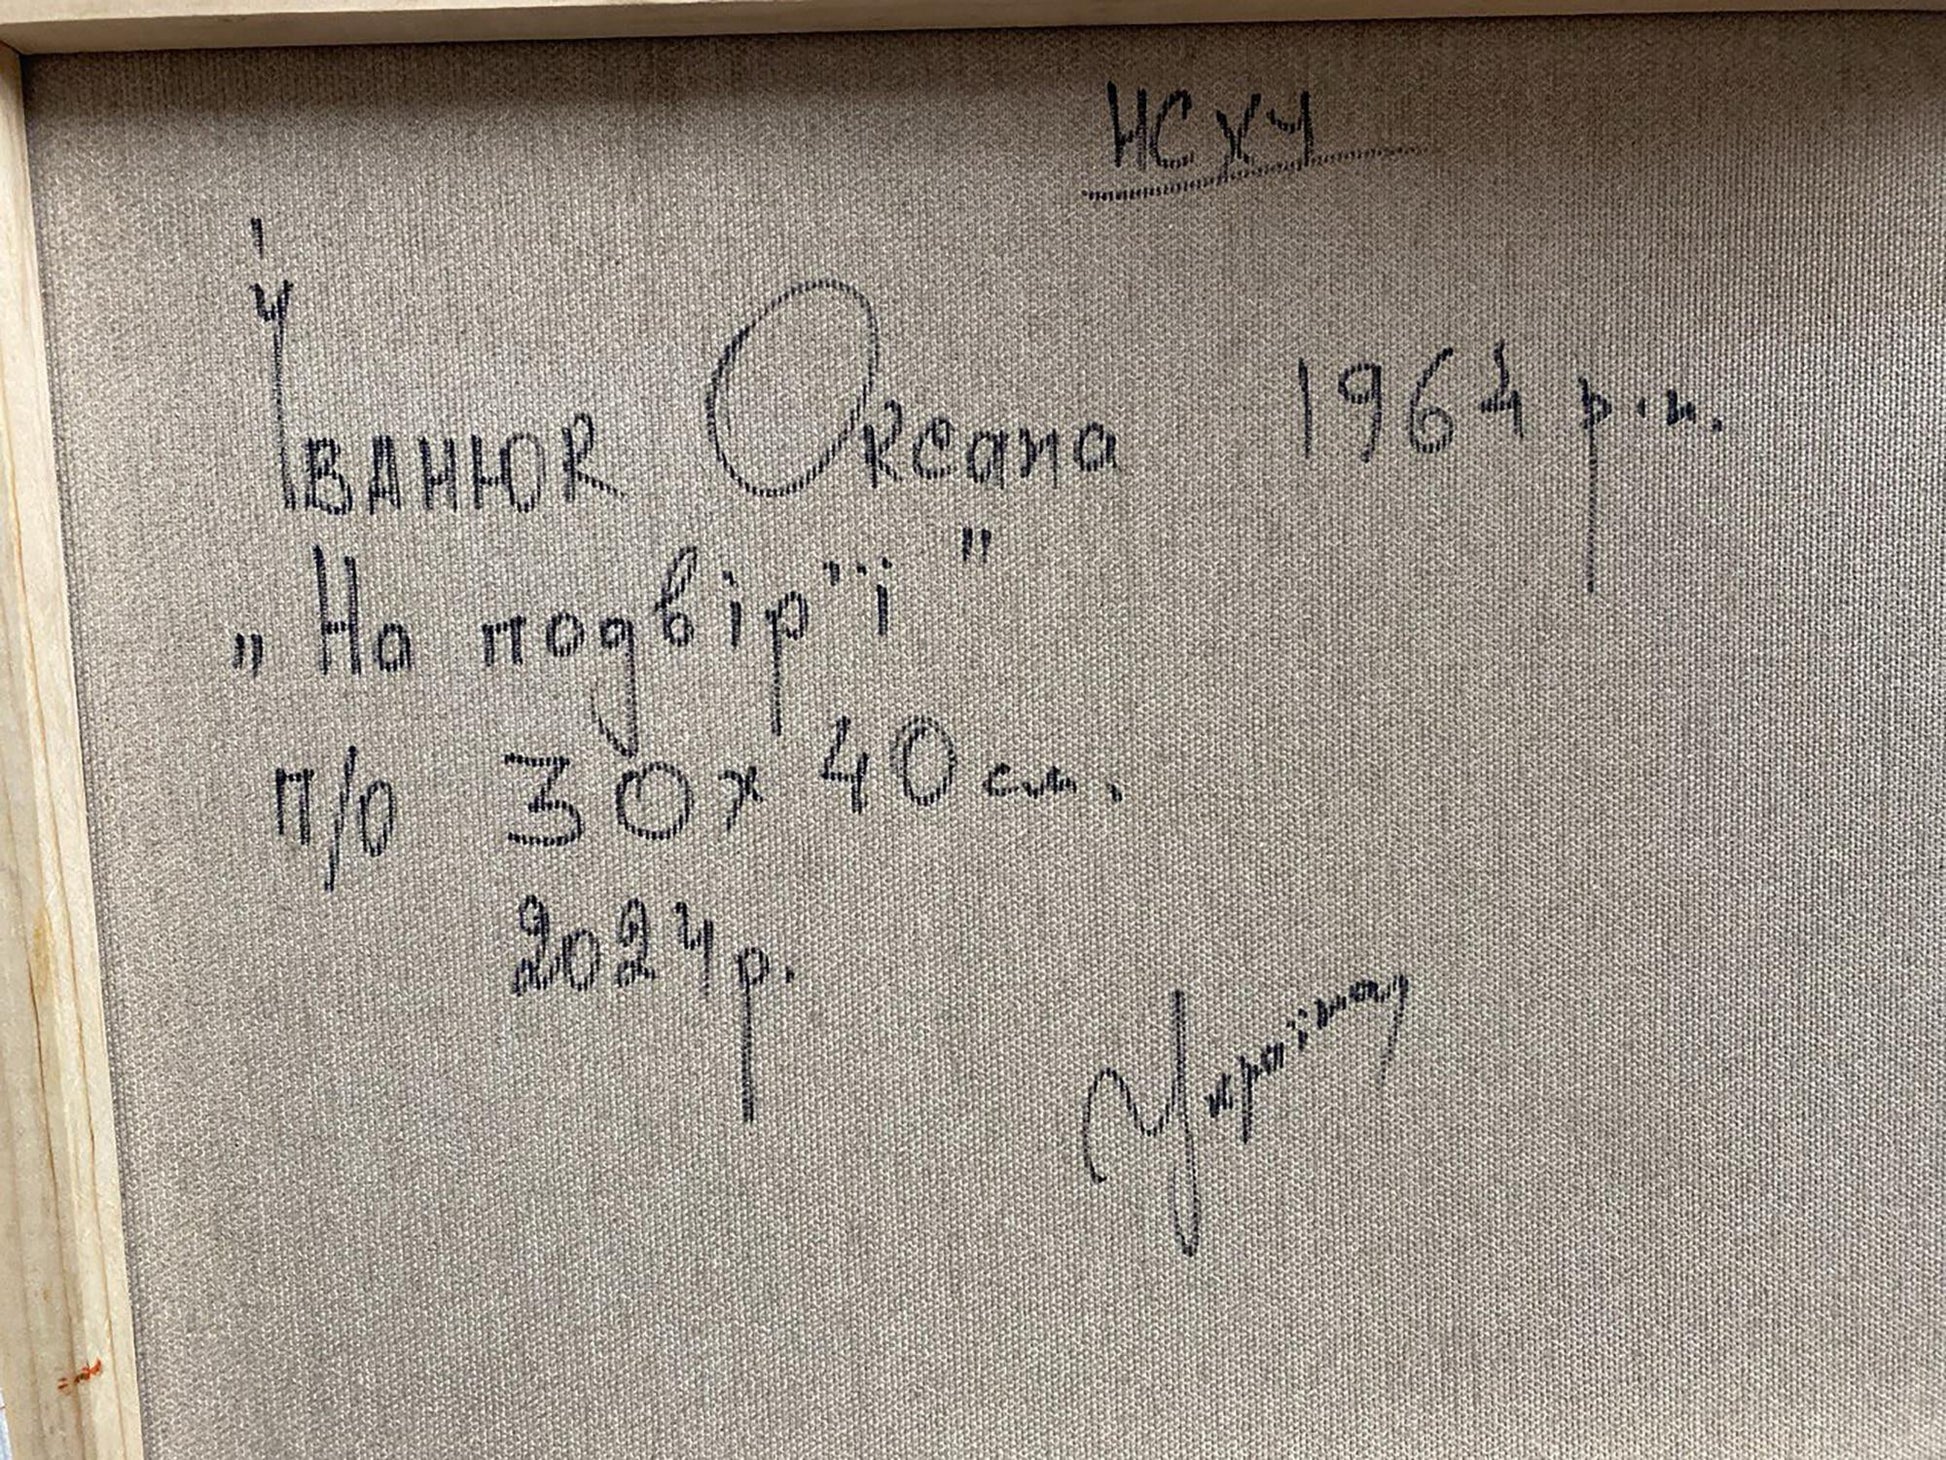 НСХУ
Іванюк Оксана 1964 р.н.
„На подвір'ї"
п/о 30х40см.
2024р.
Україна